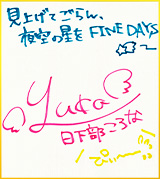 見上げてごらん、
夜空の星を FINE DAYS
Yura
日下部ころな